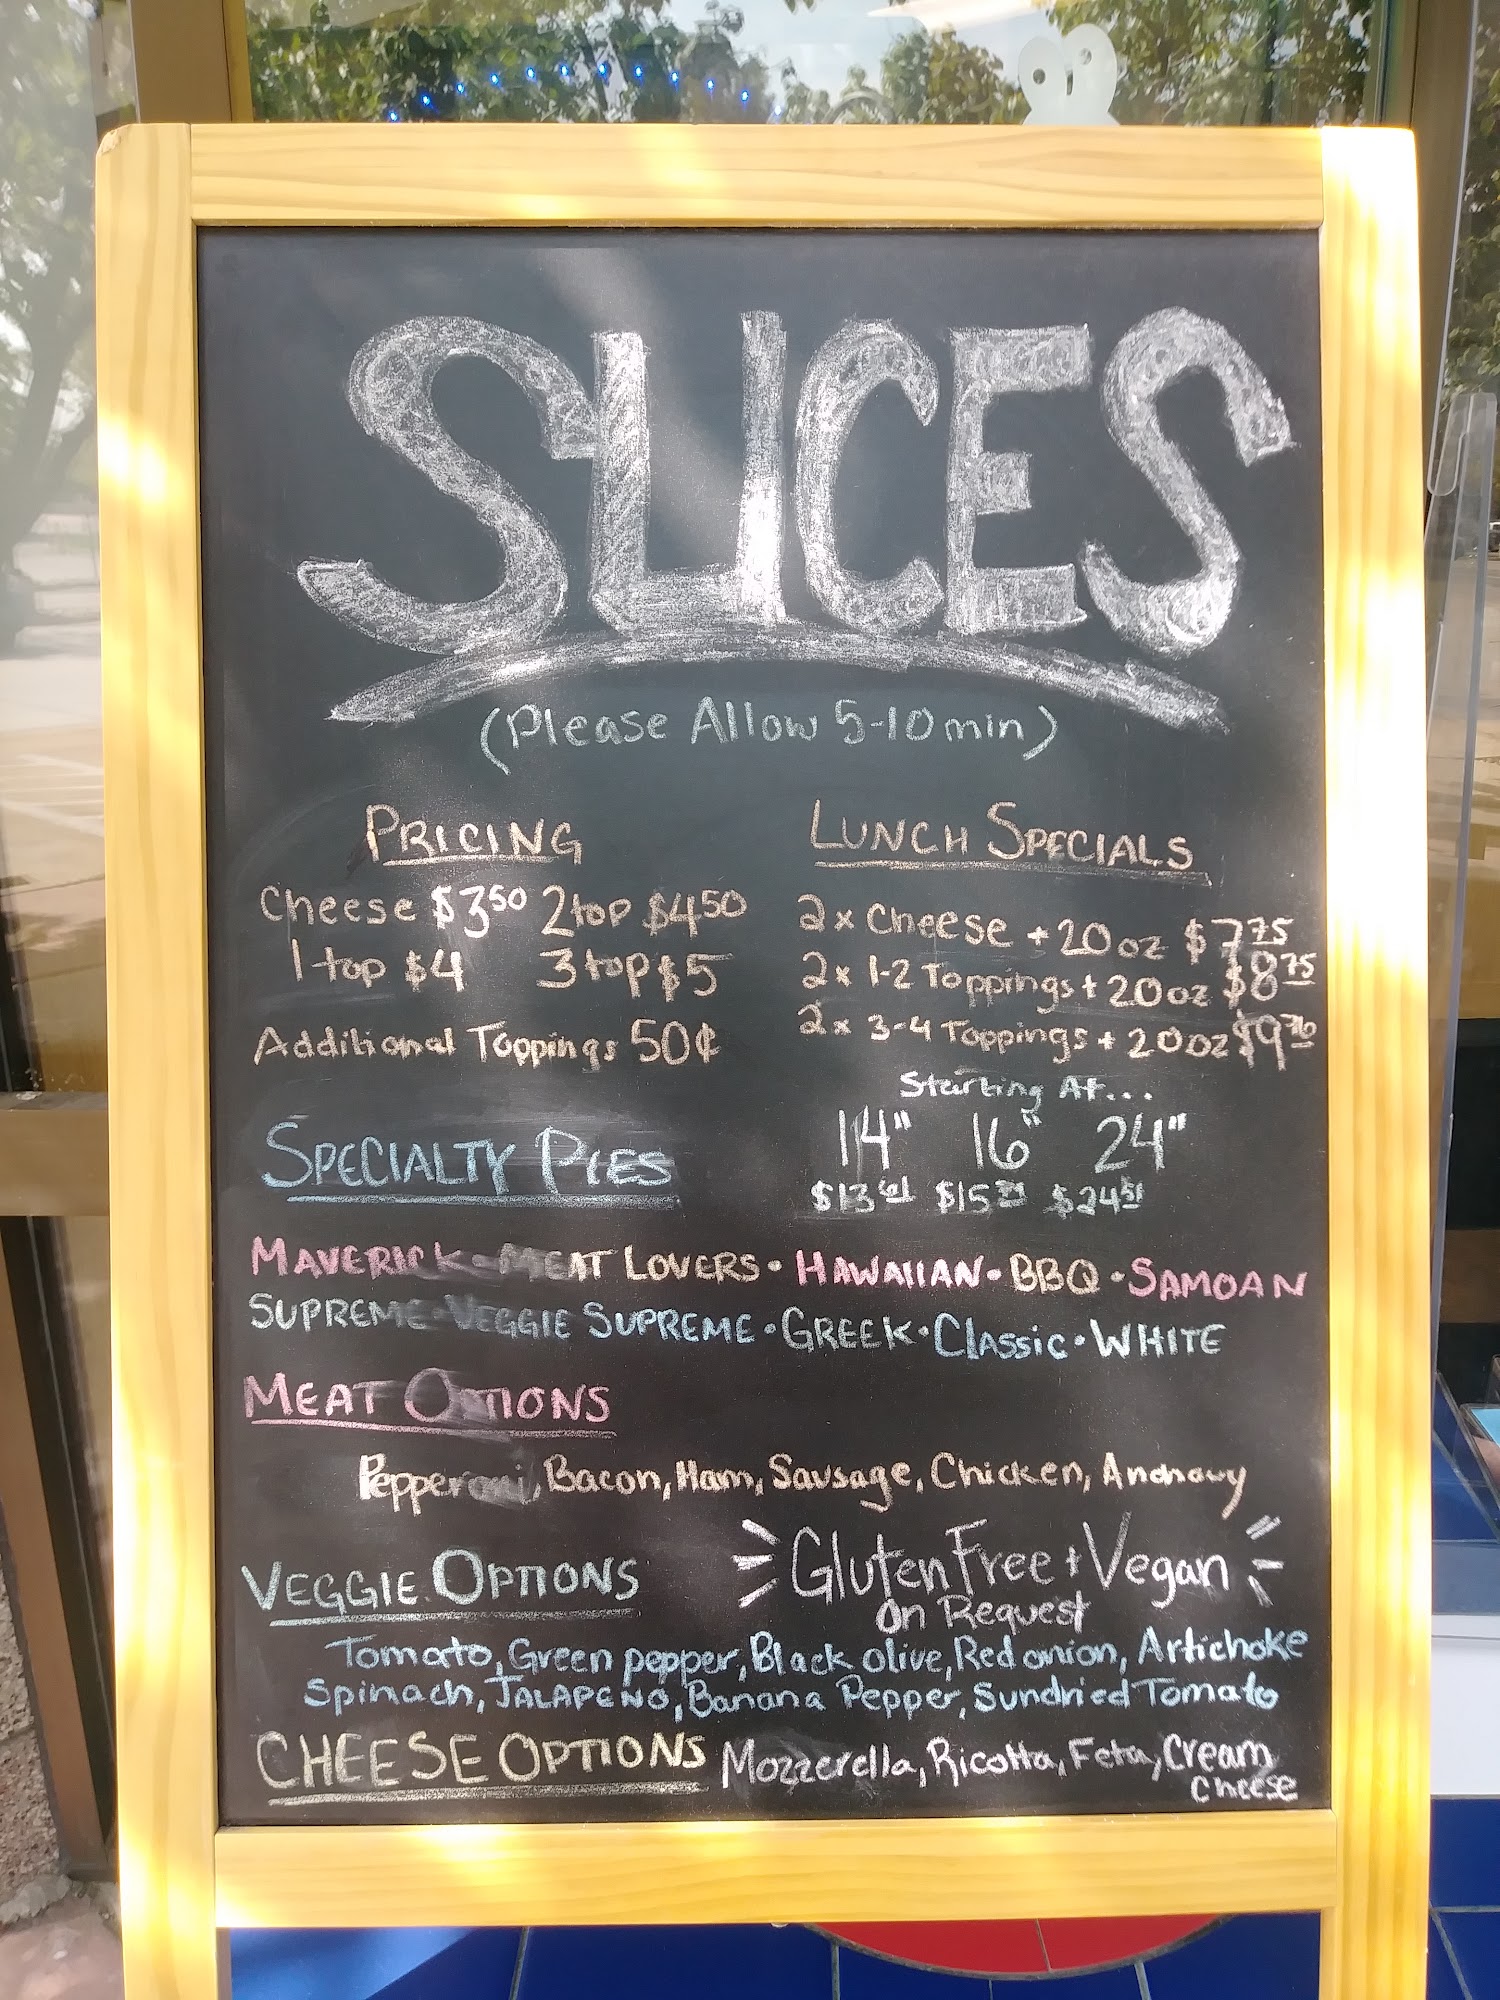 SLICES
(Please Allow 5-10min)
PRICING
Cheese $3.50 2top $4.50
1 top $4 3top $5
Additional Toppings 50¢
LUNCH SPECIALS
2x Cheese + 20oz $7.75
2x 1-2 Toppings + 20oz $8.75
2x 3-4 Toppings + 20oz $9.76
SPECIALTY PIES
Starting At...
14" 16" 24"
$13 $15 $24.51
MAVERICK • MEAT LOVERS • HAWAIIAN • BBQ • SAMOAN
SUPREME • VEGGIE SUPREME • GREEK • Classic • WHITE
MEAT OPTIONS
Pepperoni, Bacon, Ham, Sausage, Chicken, Anchovy
VEGGIE OPTIONS
Gluten Free + Vegan
On Request
Tomato, Green pepper, Black olive, Red onion, Artichoke
Spinach, JALAPENO, Banana Pepper, Sundried Tomato
CHEESE OPTIONS Mozzerella, Ricotta, Feta, Cream
cheese